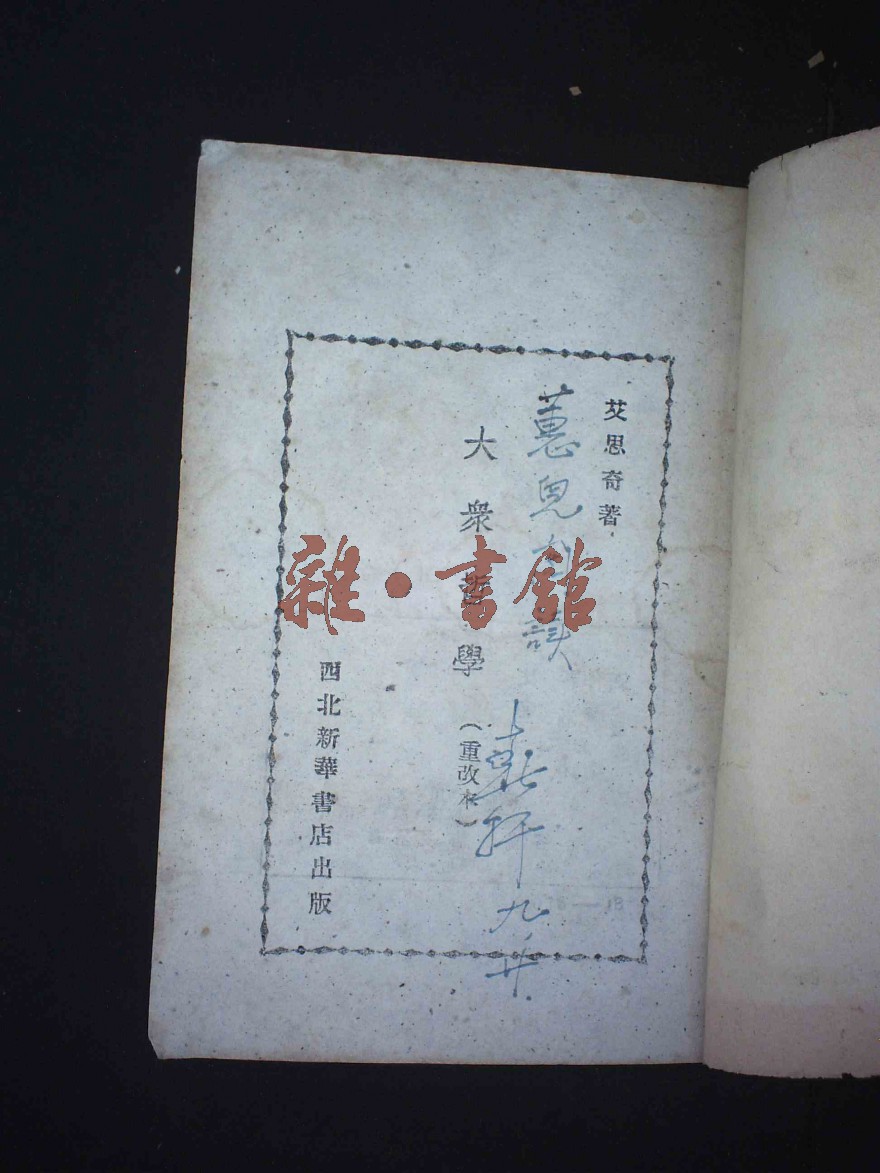 艾思奇著
蕙兒 讀
大衆哲學
(重改本)
九、廿.
西北新華書店出版
雜·書館